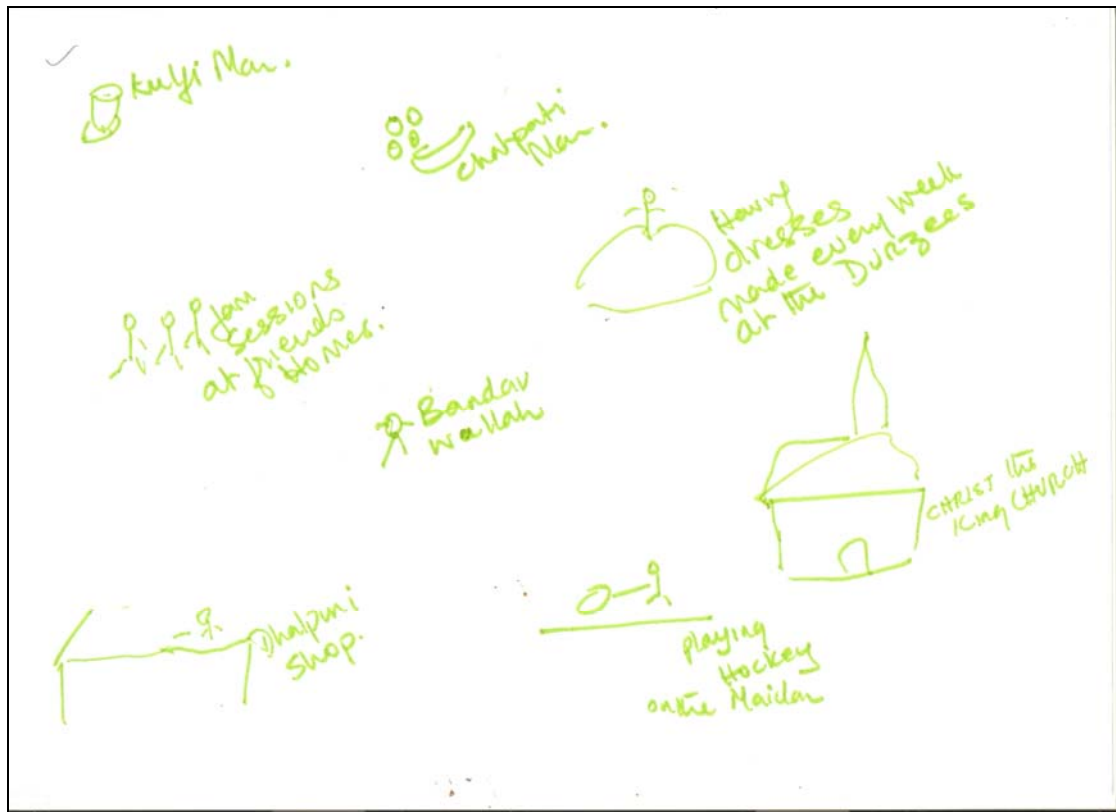 Kulfi Man.
Chatpati
Man.
Having
dresses
made every week
at the Durzees
Jam
sessions
at friends
Homes.
Bandar
wallah
CHRIST the
King CHURCH
Dhalpuri
shop.
playing
Hockey
on the Maidan